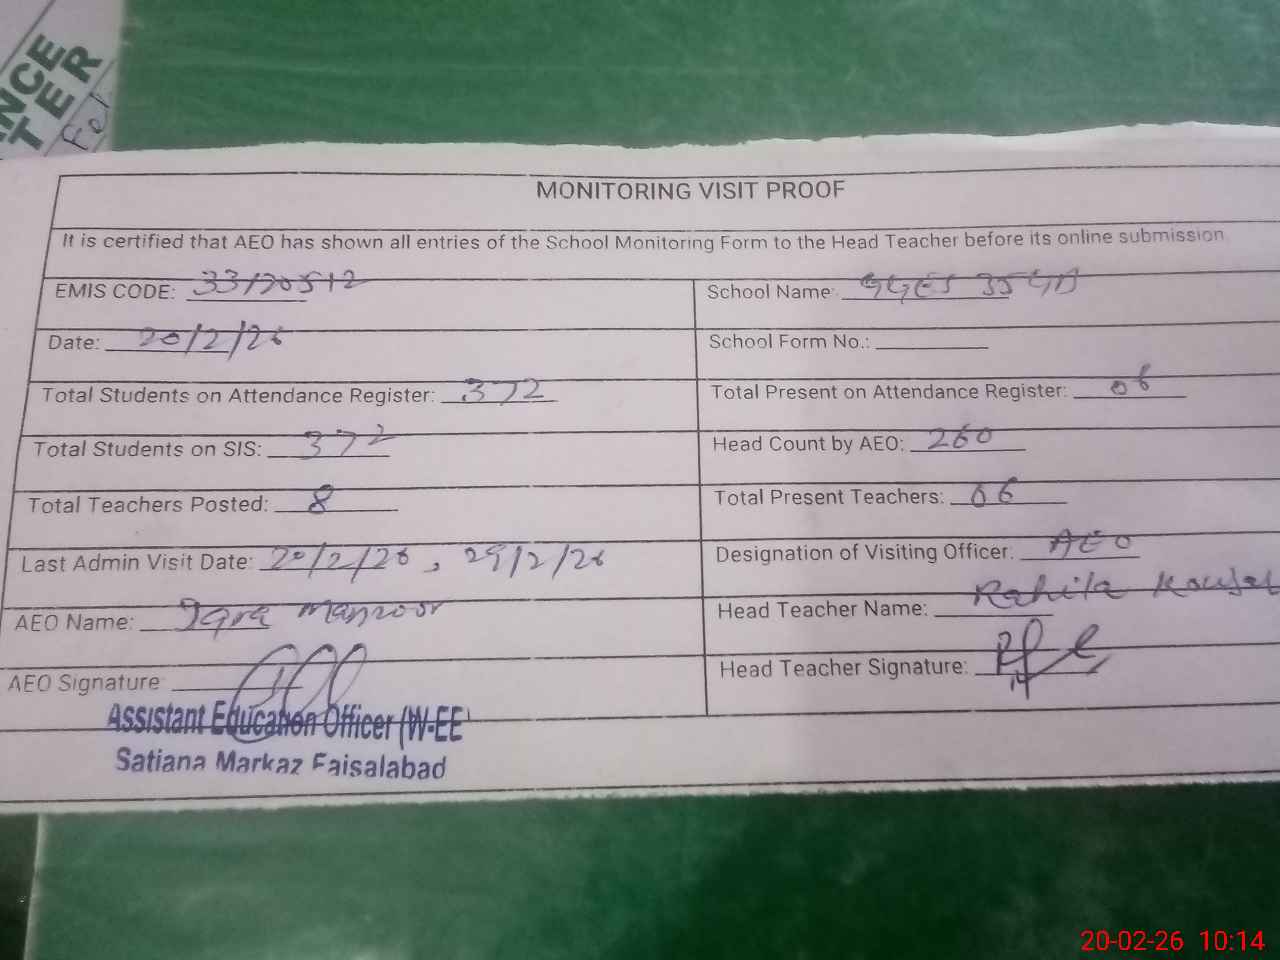 NCE
TER
MONITORING VISIT PROOF
It is certified that AEO has shown all entries of the School Monitoring Form to the Head Teacher before its online submission
EMIS CODE: 33120512 School Name: GGES 35 GB
Date: 20/2/26 School Form No.:
Total Students on Attendance Register: 372 Total Present on Attendance Register: 06
Total Students on SIS: 372 Head Count by AEO: 260
Total Teachers Posted: 8 Total Present Teachers: 06
Last Admin Visit Date: 20/2/26, 2/26 Designation of Visiting Officer: AEO
AEO Name: Iqra Manzoor Head Teacher Name: Rahila Kausar
AEO Signature Head Teacher Signature:
Assistant Education Officer (W-EE
Satiana Markaz Faisalabad
20-02-26 10:14